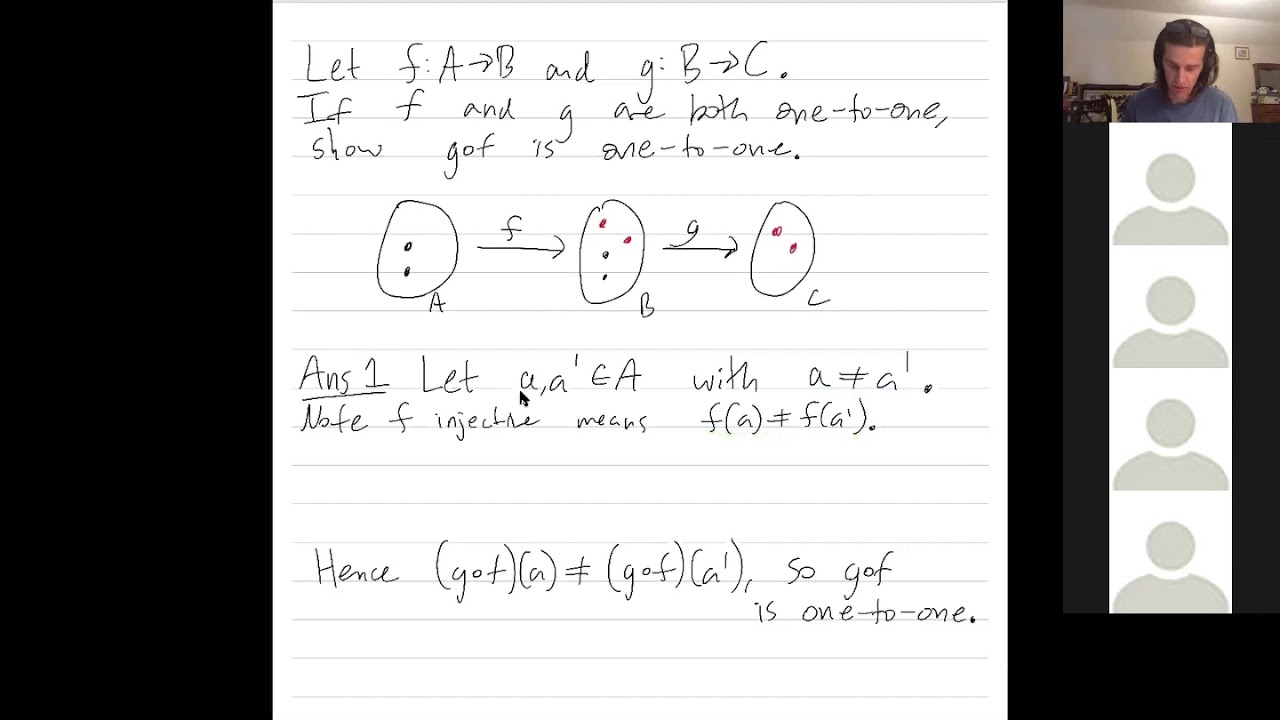 Let f: A→B and g: B→C.
If f and g are both one-to-one,
show gof is one-to-one.
f g
A B C
Ans 1 Let a, a' ∈ A with a ≠ a'.
Note f injective means f(a) ≠ f(a').
Hence (gof)(a) ≠ (gof)(a'), so gof
is one-to-one.